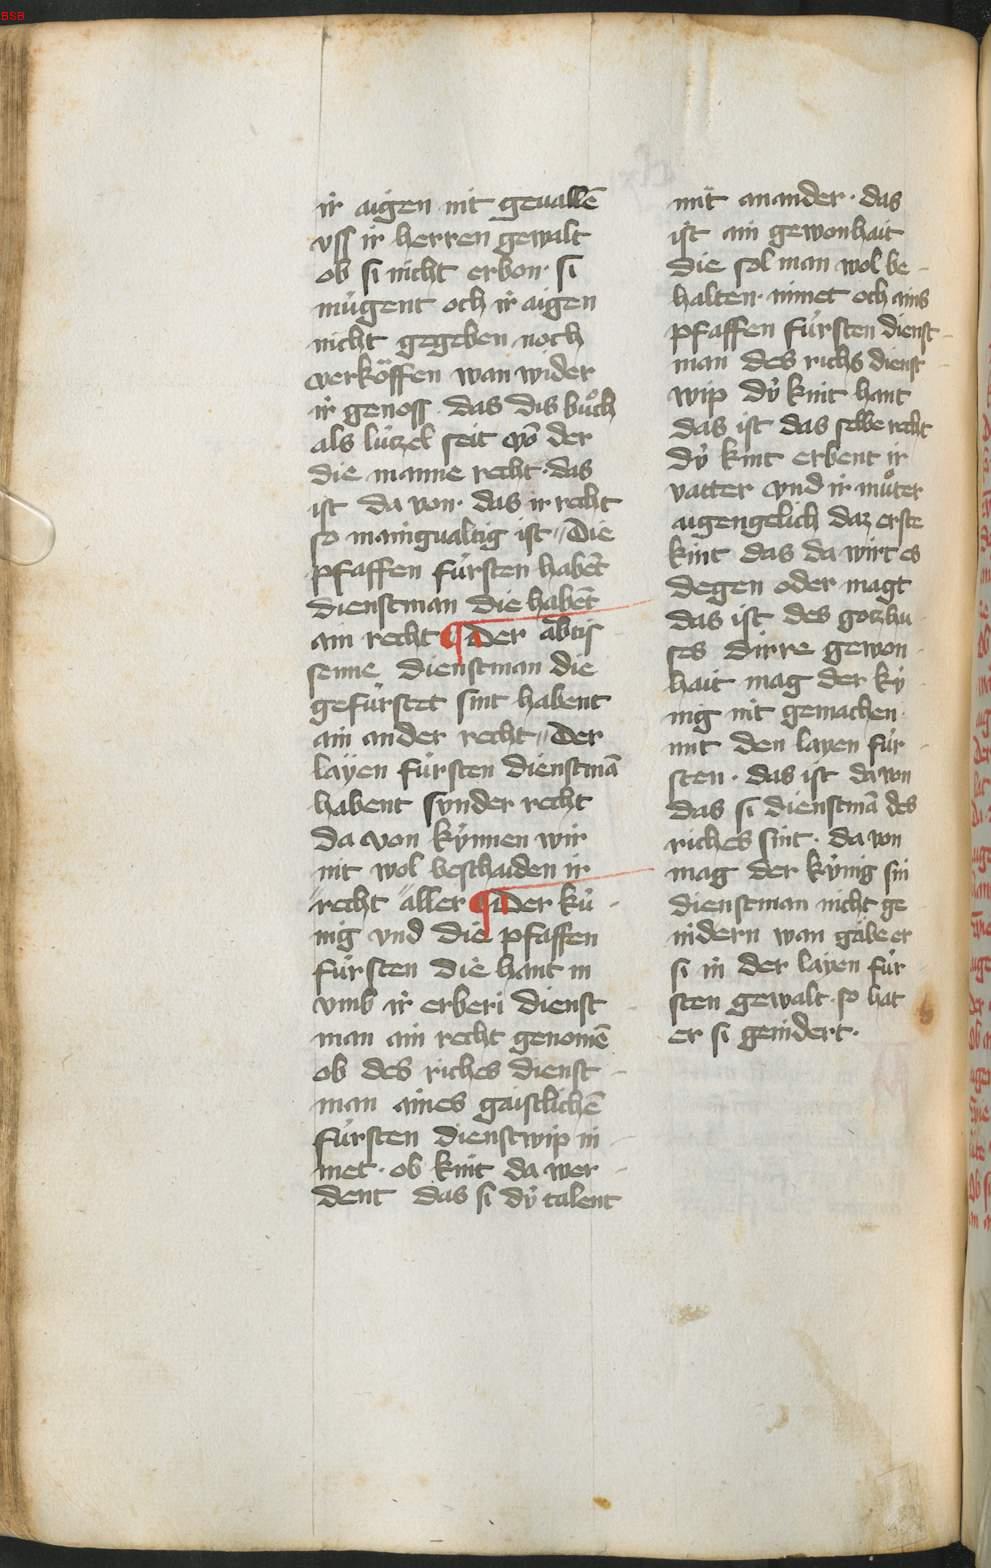 BSB
ir aigen nit geuallē
vss ir herren gewalt
ob si nicht erbon · si
mügent och ir aigen
nicht gegeben noch
verköffen wan wider
ir genoss · das dis bůch
als lüzel seit vō der
die manne recht · das
ist da von · das ir recht
so manigualtig ist // Die
pfaffen fürsten habēt
dienstman die habēt
ain recht ¶ Der äbtis
senne dienstman die
gefürstet sint habent
ain ander recht // Der
layen fürsten dienstmā
habent synder recht
da von kÿnnen wir
nit wol beschaiden ir
recht aller ¶ Der kü
nig vnd die pfaffen
fürsten die hant in
vmb ir erberi dienst
man ain recht genomē
ob des riches dienst
man aines gaistlichē
fürsten dienstwip ni
met · ob kint da wer
dent das si dÿ talent
mit anander · das
ist ain gewonhait
die sol man wol be
halten · nimet och ains
pfaffen fürsten dienst
man des richs dienst
wip dÿ kint hant
das ist das selbe recht
dÿ kint erbent ir
vatter vnd ir můter
aigengelich daz erste
kint das da wirt es
degen oder magt
das ist des gotzhu
ses dirre gewon
hait mag der kÿ
nig nit gemachen ·
mit den layen für
sten · das ist da von
das si dienstmā des
riches sint · da von
mag der kÿnig sin
dienstman nicht ge
nidern wan gäbe er
si in der layen für
sten gewalt · so hat
er si genidert ·